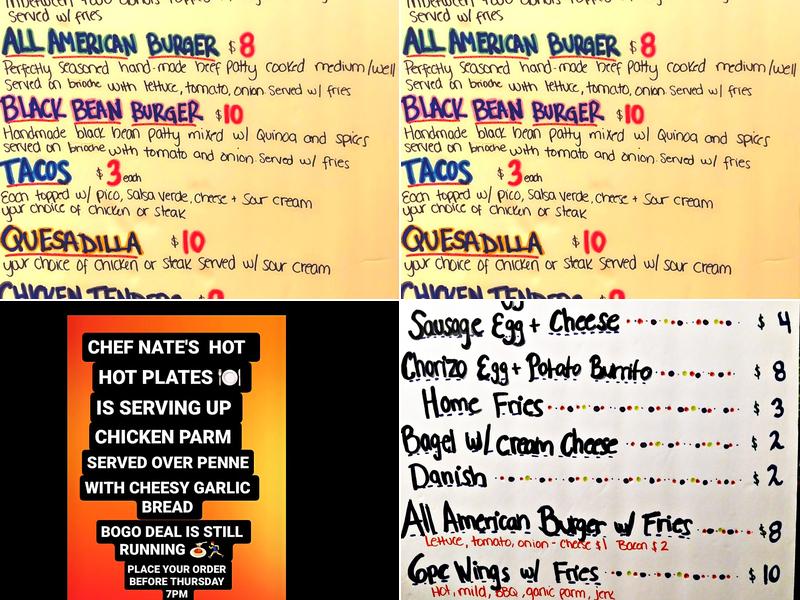 Served w/ fries
ALL AMERICAN BURGER $8
Perfectly seasoned hand-made beef patty cooked medium/well
Served on brioche with lettuce, tomato, onion Served w/ fries
BLACK BEAN BURGER $10
Handmade black bean patty mixed w/ Quinoa and spices
served on brioche with tomato and onion. Served w/ fries
TACOS $3 each
Each topped w/ pico, Salsa verde, cheese + Sour cream
your choice of chicken or steak
QUESADILLA $10
your choice of chicken or steak Served w/ sour cream
CHICKEN TENDERS
Served w/ fries
ALL AMERICAN BURGER $8
Perfectly seasoned hand-made beef patty cooked medium/well
Served on brioche with lettuce, tomato, onion Served w/ fries
BLACK BEAN BURGER $10
Handmade black bean patty mixed w/ Quinoa and spices
served on brioche with tomato and onion. Served w/ fries
TACOS $3 each
Each topped w/ pico, Salsa verde, cheese + Sour cream
your choice of chicken or steak
QUESADILLA $10
your choice of chicken or steak Served w/ sour cream
CHICKEN TENDERS
CHEF NATE'S HOT
HOT PLATES 🍽️
IS SERVING UP
CHICKEN PARM
SERVED OVER PENNE
WITH CHEESY GARLIC
BREAD
BOGO DEAL IS STILL
RUNNING 🍝🏃
PLACE YOUR ORDER
BEFORE THURSDAY
7PM
Sausage Egg + Cheese $4
Chorizo Egg + Potato Burrito $8
Home Fries $3
Bagel w/ Cream Cheese $2
Danish $2
All American Burger w/ Fries $8
Lettuce, tomato, onion - cheese $1 Bacon $2
6pc Wings w/ Fries $10
Hot, mild, BBQ, garlic parm, jerk